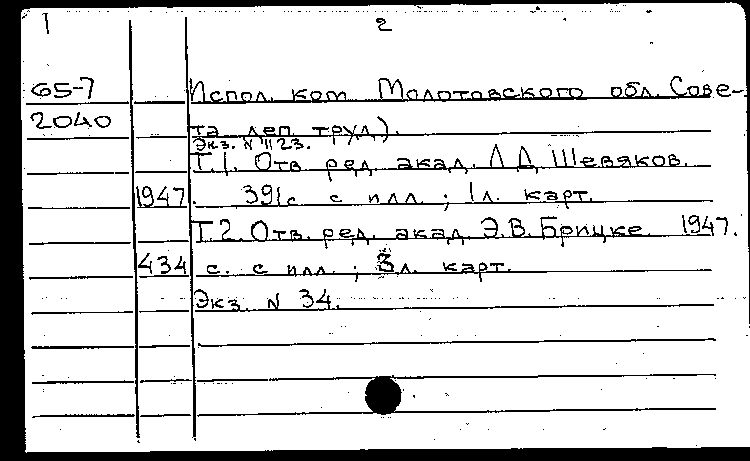 1 2
65-7 Испол. ком. Молотовского обл. Сове-
2040 та деп. труд.).
Экз. N 1123.
Т.1. Отв. ред. акад. Л.Д. Шевяков.
1947. 391с. с илл. ; 1л. карт.
Т.2. Отв. ред. акад. Э.В. Брицке. 1947.
434 с. с илл. ; 3л. карт.
Экз. N 34.